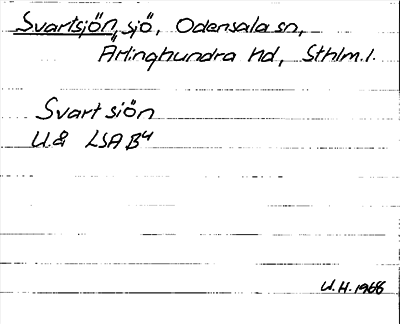 Svartsjön, sjö, Odensala sn,
Ärlinghundra hd, Sthlm.l.
Svart siön
U.å LSA B4
U.H. 1966